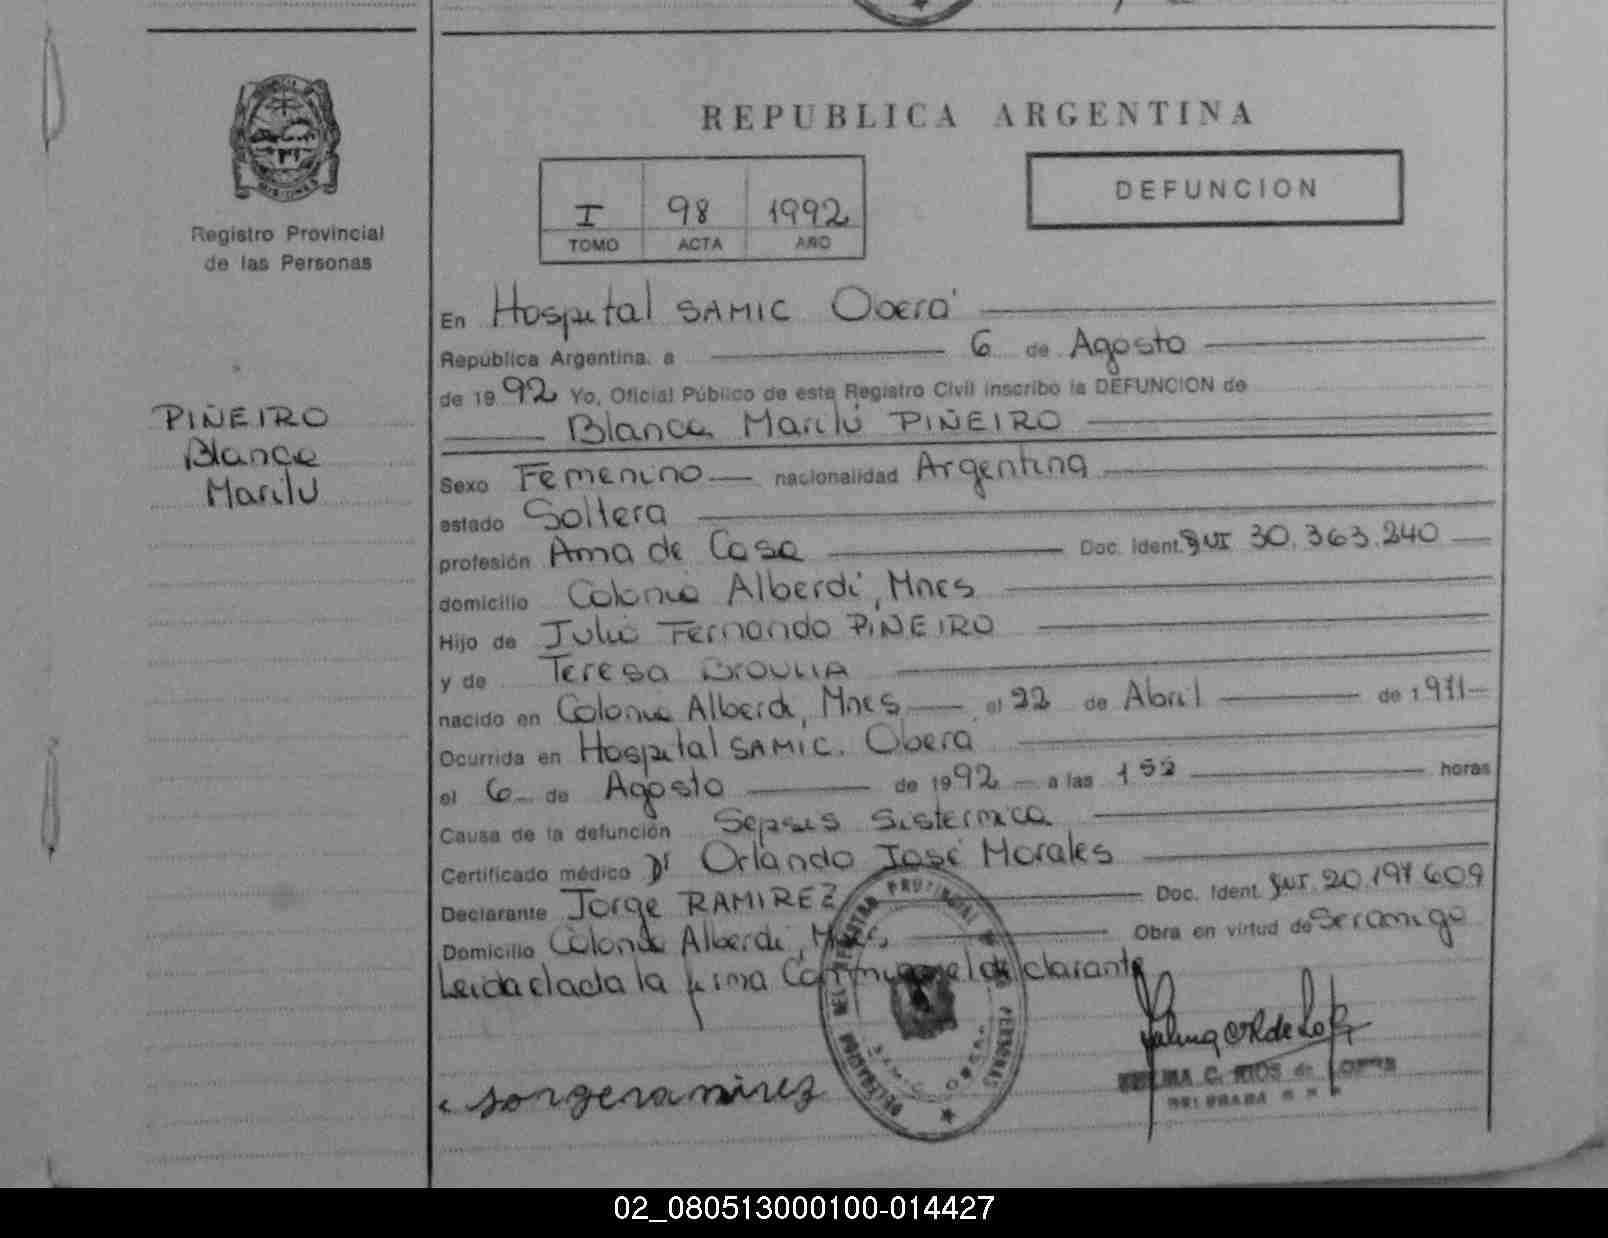 REPUBLICA ARGENTINA
DEFUNCION
I 98 1992
TOMO ACTA AÑO
Registro Provincial
de las Personas
PIÑEIRO
Blanca
Marilú
En Hospital SAMIC Oberá
Republica Argentina, a 6 de Agosto
de 1992 Yo, Oficial Público de este Registro Civil inscribo la DEFUNCION de
Blanca Marilú PIÑEIRO
Sexo Femenino nacionalidad Argentina
estado Soltera
profesión Ama de Casa Doc. Ident. 30.363.240
domicilio Colonia Alberdi, Mnes
Hijo de Julio Fernando PIÑEIRO
y de Teresa
nacido en Colonia Alberdi, Mnes el 22 de Abril de 1971
Ocurrida en Hospital SAMIC. Oberá
el 6 de Agosto de 1992 a las horas
Causa de la defunción Sepsis Sistermica
Certificado médico Dr Orlando José Morales
Declarante Jorge RAMIREZ Doc. Ident. 20.197.609
Domicilio Colonia Alberdi, Mnes Obra en virtud de Ser amigo
Leida dada la firma Conmigo el declarante
REGISTRO PROVINCIAL DE LAS PERSONAS
DELEGACION
SAMIC
sorgeramirez
C. RIOS de LOPEZ
02_080513000100-014427